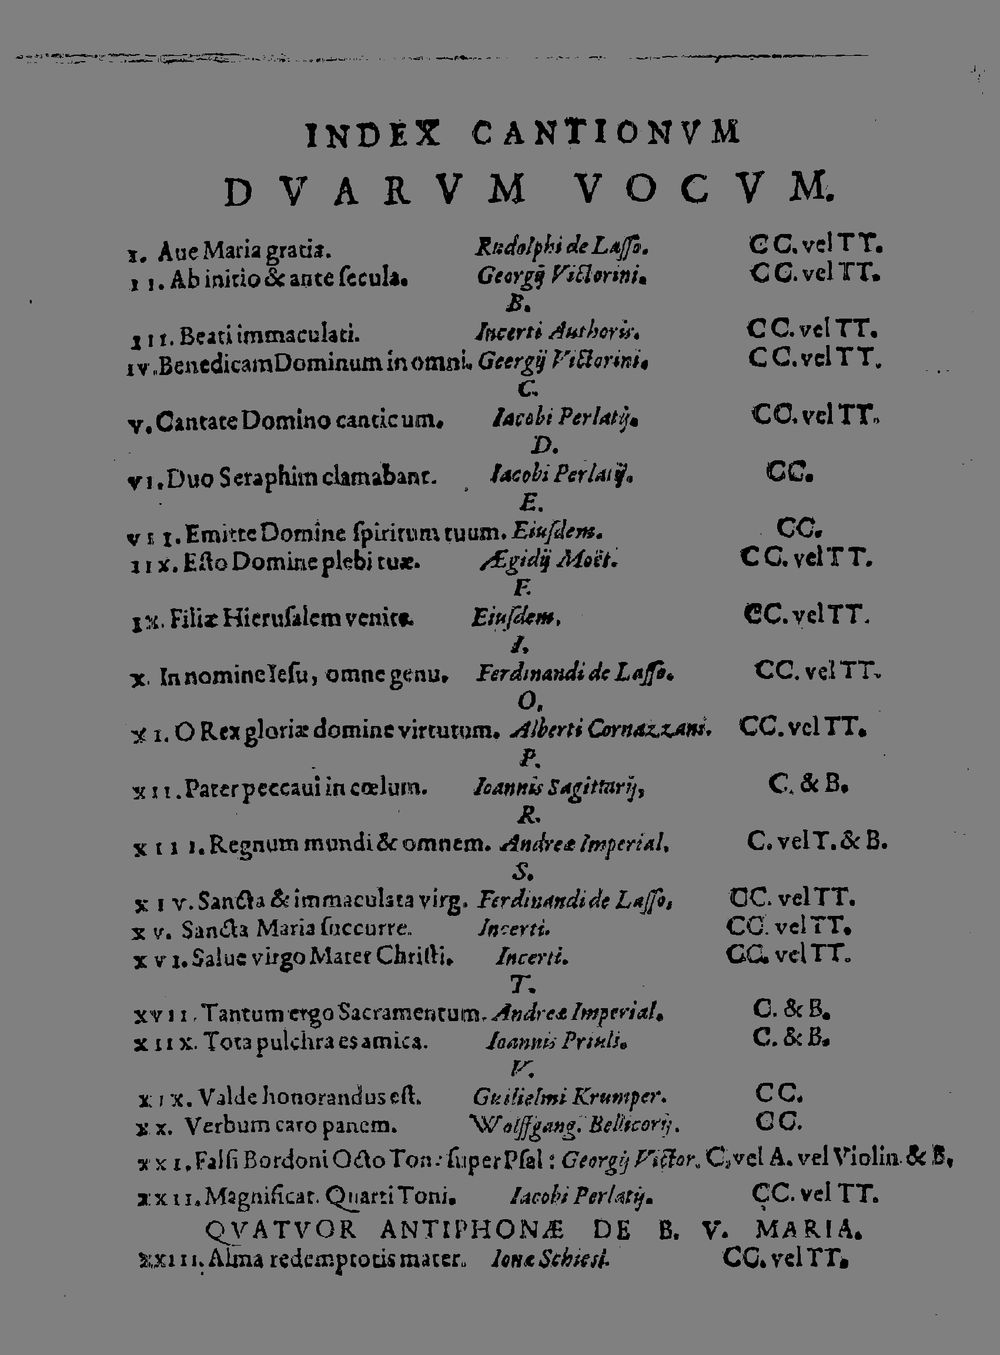 INDEX CANTIONVM
DVARVM VOCVM.
I. Aue Maria gratia. Rudolphi de Lasso. CC. vel TT.
II. Ab initio & ante secula. Georgij Victorini. CC. vel TT.
B.
III. Beati immaculati. Incerti Authoris. CC. vel TT.
IV. Benedicam Dominum in omni. Geergij Victorini. CC. vel TT.
C.
V. Cantate Domino canticum. Iacobi Perlatij. CC. vel TT.
D.
VI. Duo Seraphim clamabant. Iacobi Perlatij. CC.
E.
VII. Emitte Domine spiritum tuum. Eiusdem. CC.
IIX. Esto Domine plebi tuæ. Ægidij Moët. CC. vel TT.
F.
IX. Filiæ Hierusalem venite. Eiusdem. CC. vel TT.
I.
X. In nomine Iesu, omne genu. Ferdinandi de Lasso. CC. vel TT.
O.
XI. O Rex gloriæ domine virtutum. Alberti Cornazzani. CC. vel TT.
P.
XII. Pater peccaui in cœlum. Ioannis Sagittarij, C. & B.
R.
XIII. Regnum mundi & omnem. Andreæ Imperial. C. vel T. & B.
S.
XIV. Sancta & immaculata virg. Ferdinandi de Lasso, CC. vel TT.
XV. Sancta Maria succurre. Incerti. CC. vel TT.
XVI. Salue virgo Mater Christi. Incerti. CC. vel TT.
T.
XVII. Tantum ergo Sacramentum. Andreæ Imperial. C. & B.
XIIX. Tota pulchra es amica. Ioannis Priuli. C. & B.
V.
XIX. Valde honorandus est. Guilielmi Krumper. CC.
XX. Verbum caro panem. Wolffgang. Bellicorij. CC.
XXI. Falsi Bordoni Octo Ton: super Psal: Georgij Victor. C. vel A. vel Violin & B.
XXII. Magnificat. Quarti Toni. Iacobi Perlatij. CC. vel TT.
QVATVOR ANTIPHONÆ DE B. V. MARIA.
XXIII. Alma redemptotis mater. Ionæ Schiesl. CC. vel TT.